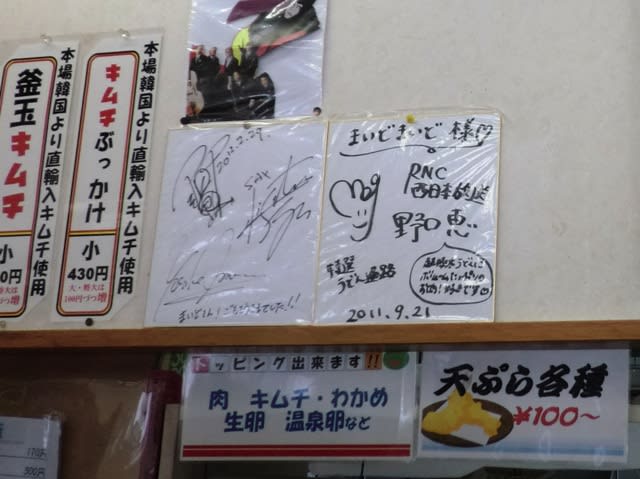 釜玉キムチ
小
本場韓国より直輸入キムチ使用
キムチぶっかけ
小
430円
大・特大は
100円づつ増
本場韓国より直輸入キムチ使用
2012.2.29.
まいどさん！ごちそうさまでした!!
まいどまいど 様
RNC
西日本放送
野口 恵
特選
うどん遍路
2011.9.21
トッピング出来ます!!
肉 キムチ・わかめ
生卵 温泉卵など
天ぷら各種
¥100～
170円
300円